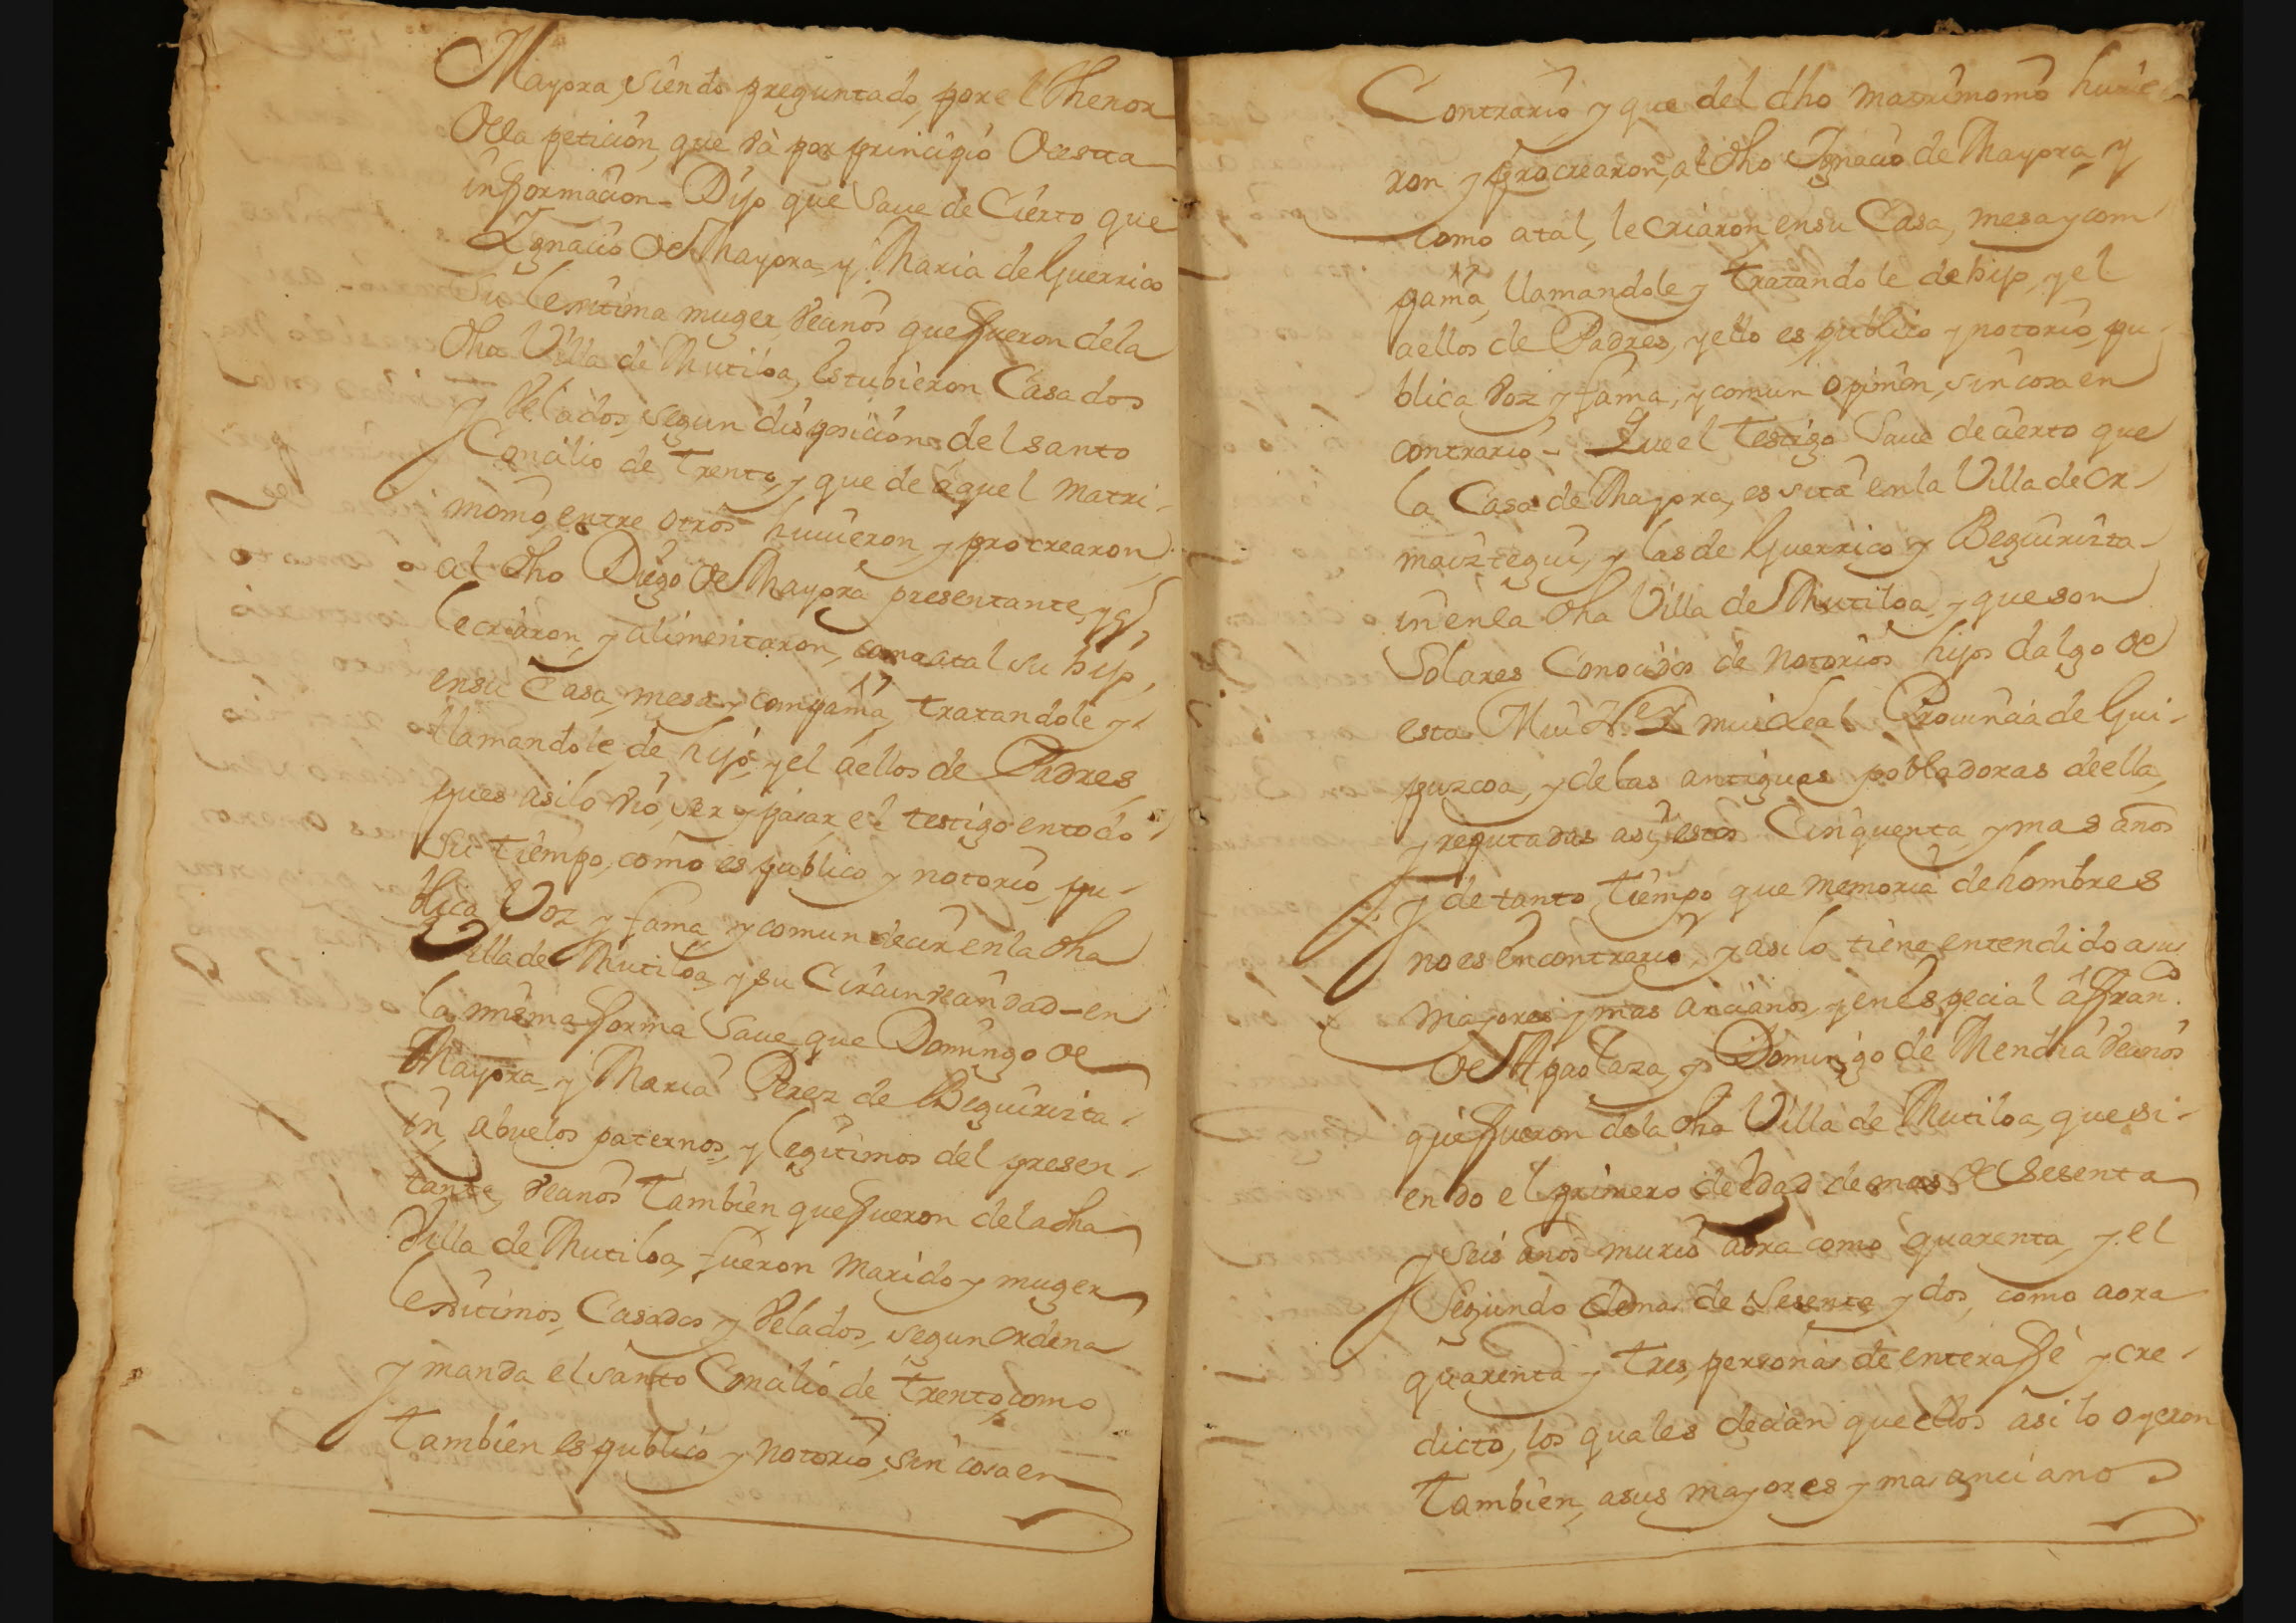 Mayora, siendo preguntado, por el thenor
de la petición, que va por principio de esta
informacion - Dijo que save de Cierto que
Ignacio de Mayora, y Maria de Guerrico
su lexitima muger, vecinos que fueron dela
dha Villa de Mutiloa, estubieron Casados
y Velados, segun disposicion del santo
Concilio de Trento, y que de aquel matri-
monio, entre otros huuieron, y procrearon
al dho Diego de Mayora presentante, y
le criaron, y alimentaron, como atal su hijo,
ensu Casa, mesa y compañia, tratandole y
llamandole, de hijo, y el aellos de Padres,
pues asilo vió, ser y pasar, el testigo entodo
su tiempo, como es publico y notorio, pu-
blica Voz y fama, y comun decir enla dha
Villa de Mutiloa, y su Circunveandad - en
la misma forma save, que Domingo de
Mayora, y Maria Perez de Beguirizta-
in, abuelos paternos, y legitimos del presen-
tante, vecinos tambien que fueron dela dha
Villa de Mutiloa, fueron marido y muger
lexitimos, Casados y Velados, segun ordena
y manda el santo Concilio de Trento, como
tambien es publico y notorio, sin cosa en
Contrario y que del dho matrimonio huuie-
ron y procrearon, al dho Ignacio de Mayora, y
como atal, le criaron ensu Casa, mesa y com-
pañia, llamandole y tratandole de hijo, y el
aellos de Padres, y ello es publico y notorio, pu-
blica voz y fama, y comun opinion, sin cosa en
contrario - Que el testigo save de cierto que
la Casa de Mayora, es sita enla Villa de Or-
maiztegui, y las de Guerrico y Beguirizta-
in enla dha Villa de Mutiloa, y que son
Solares Conocidos de notorios hijos dalgo de
esta Mui N. Y mui Leal Prouincia de Gui-
puzcoa, y delas antiguas pobladoras deella,
y reputadas asi, estos Cinquenta y mas años
y de tanto tiempo que memoria de hombres
no es en contrario, y asi lo tiene entendido asus
mayores y mas ancianos, y en especial a Fran.co
de Apaolaza, y Domingo de Mendia vecinos
que fueron dela dha Villa de Mutiloa, que si-
endo el primero de edad de mas de sesenta
y seis años murió aora como quarenta, y el
segundo demas de sesenta y dos, como aora
quarenta y tres, personas de entera fe y cre-
dicto, los quales decian que ellos asi lo oyeron
tambien, asus mayores y mas anciano